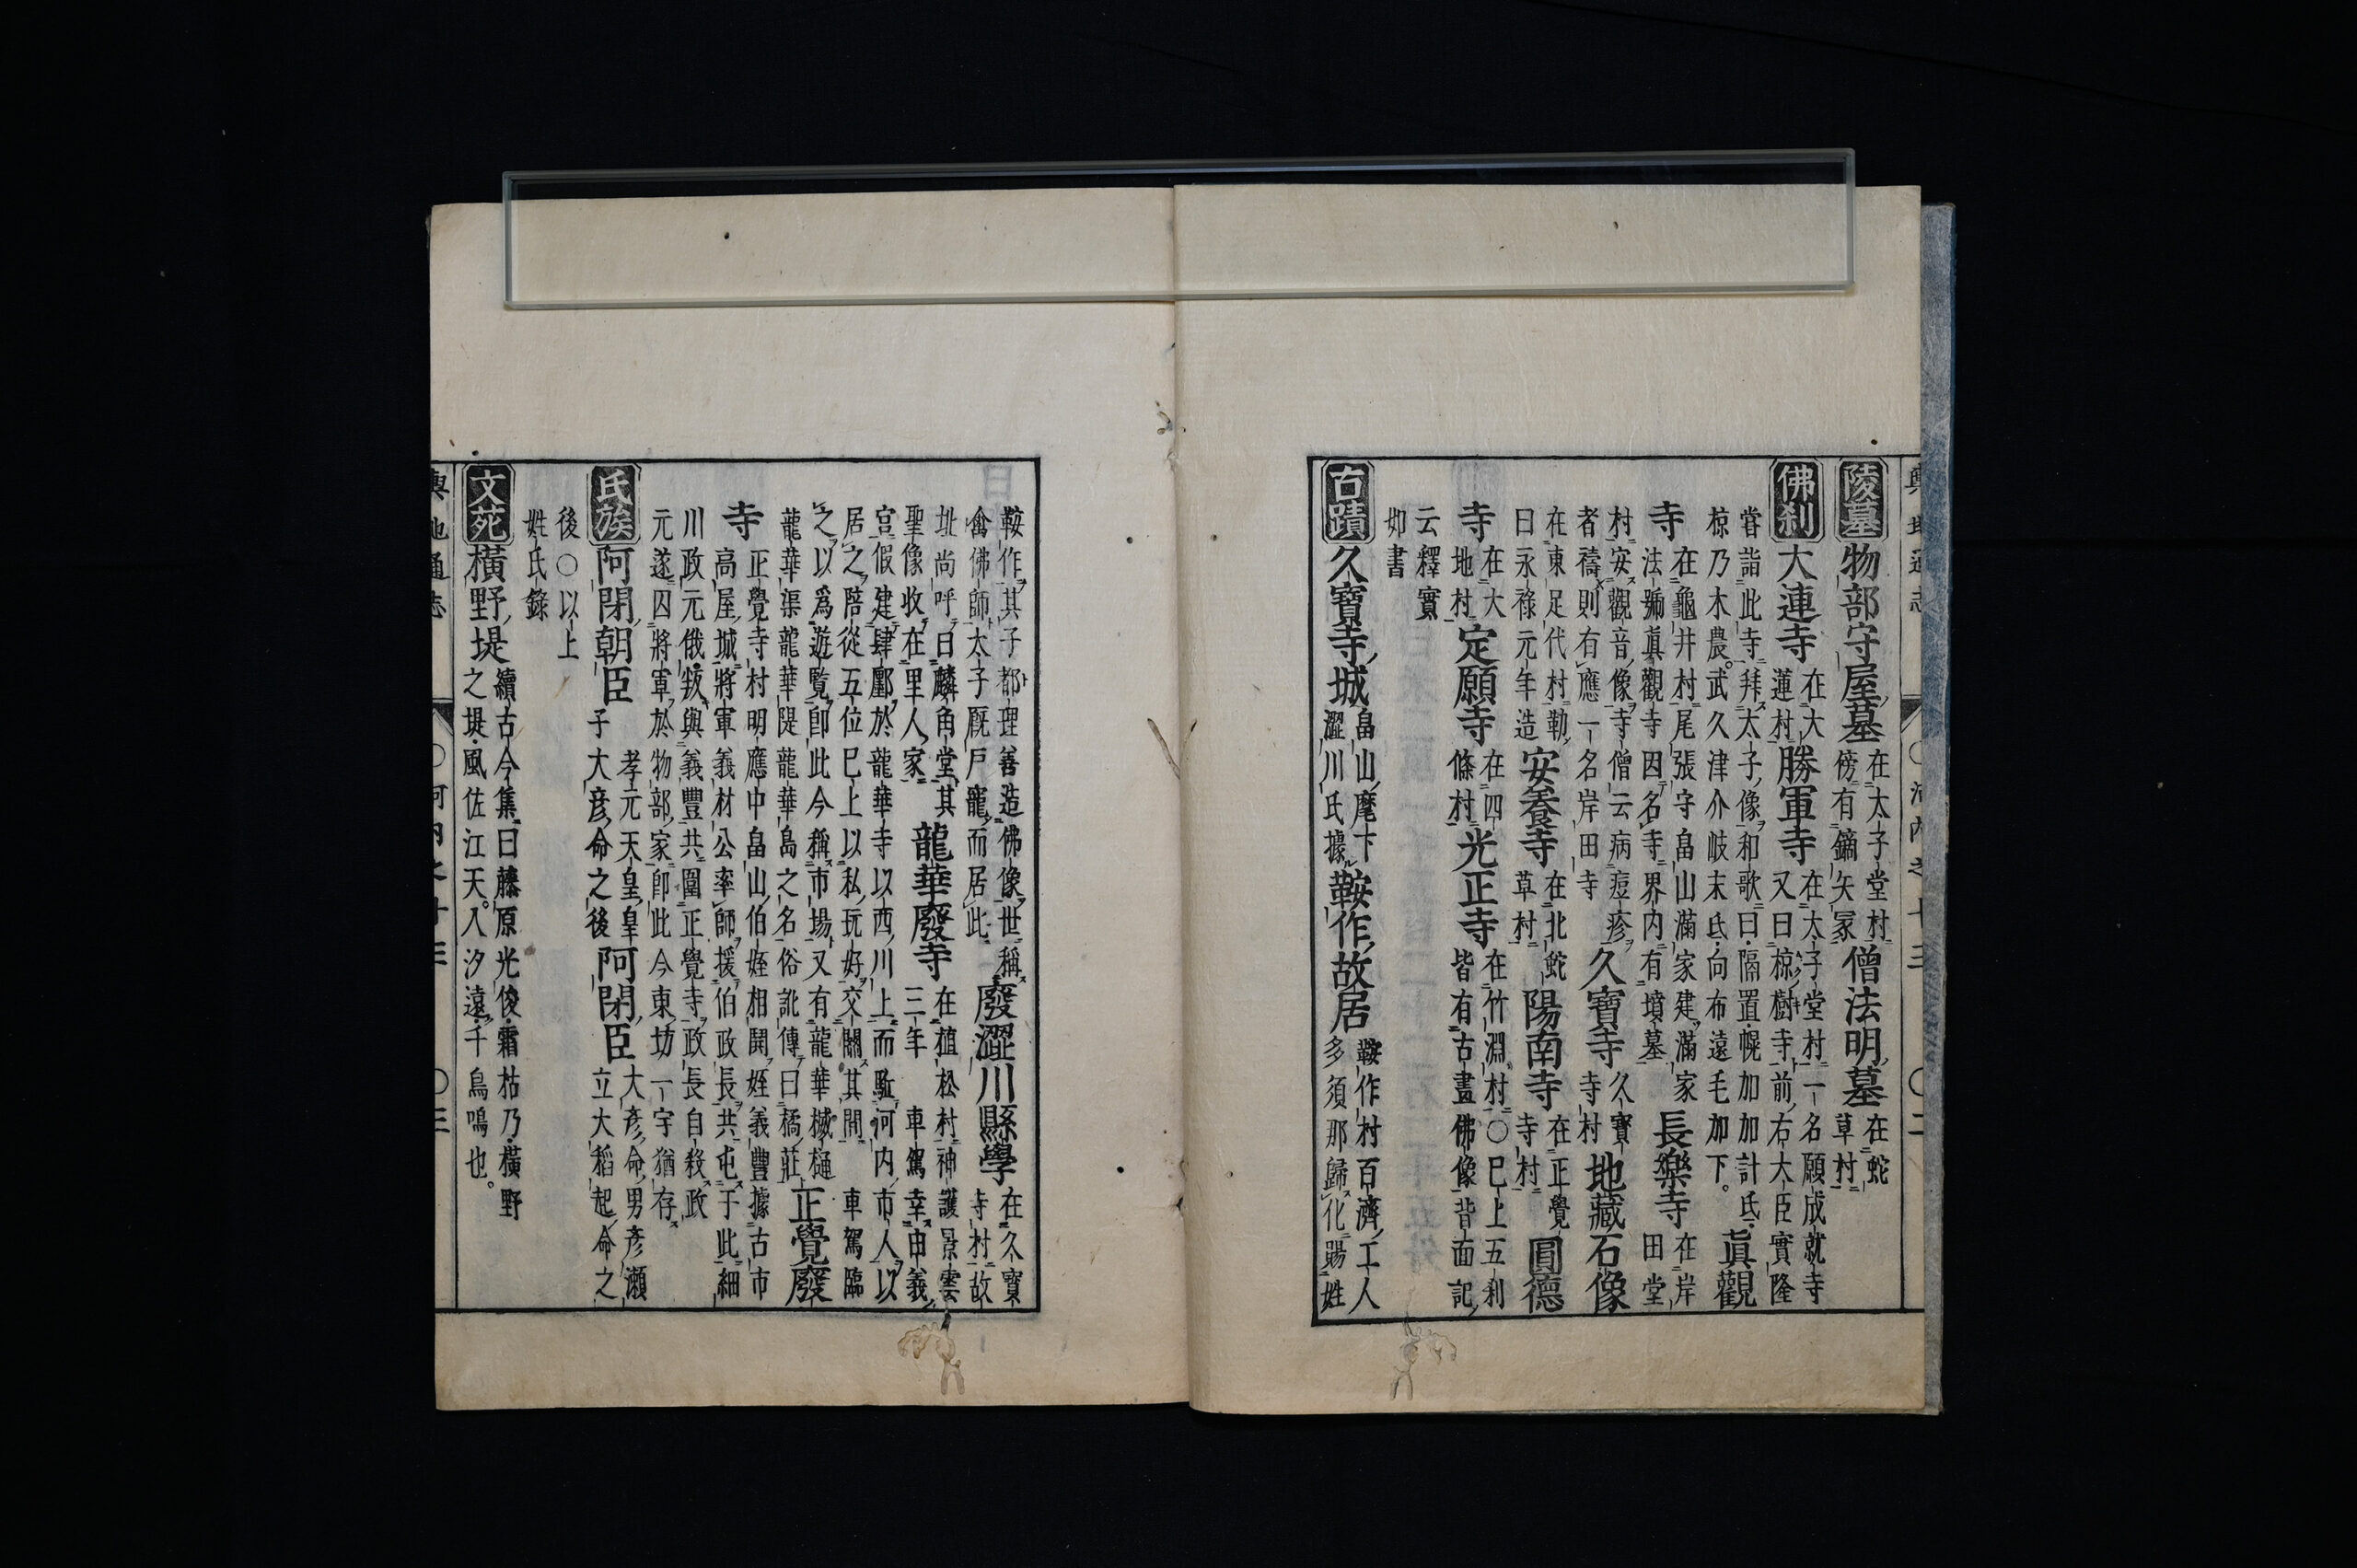 輿地通志 ○河内之十三 ○二
陵墓 物部守屋墓 在太子堂村傍有鏑矢冢 僧法明墓 在蛇草村
佛刹 大連寺 在大蓮村 勝軍寺 在太子堂村一名願成就寺又曰椋樹寺前右大臣實隆
甞詣此寺拜太子像和歌曰隔置幌加加計氐椋乃木農。武久津介岐末氐向布遠毛加下。 眞觀
寺 在龜井村尾張守畠山滿家建滿家法號眞觀寺因名寺界内有墳墓 長樂寺 在岸田堂
村安觀音像寺僧云病痘疹者禱則有應一名岸田寺 久寶寺 久寶寺村 地藏石像
在東足代村勒曰永祿元年造 安養寺 在北蛇草村 陽南寺 在正覺寺村 圓德
寺 在大地村 定願寺 在四條村 光正寺 在竹淵村○巳上五刹皆有古畫佛像背面記
云釋實如書
古蹟 久寶寺城 畠山麾下澀川氏據 鞍作故居 鞍作村百濟工人多須那歸化賜姓
鞍作其子都理善造佛像世稱禽佛師太子厩戸寵而居此 廢澀川縣學 在久寶寺村故
址尚呼曰麟角堂其聖像收在里人家 龍華廢寺 在植松村神護景雲三年車駕幸由義
宮假建肆廛於龍華寺以西川上而駈河内市人以
居之陪從五位巳上以私玩好交關其間車駕臨
之以爲遊覧卽此今稱市場又有龍華樾樋龍華渠龍華隄龍華島之名俗訛傳曰橘莊 正覺廢
寺 正覺寺村明應中畠山伯姪相鬩姪義豐據古市高屋城將軍義材公率師援伯政長共屯于此細
川政元俄叛與義豐共圍正覺寺政長自殺政
元遂囚將軍於物部家卽此今東坊一宇猶存
氏族 阿閉朝臣 孝元天皇皇子大彦命之後 阿閉臣 大彦命男彦瀬立大稻起命之
後○以上姓氏錄
文苑 橫野堤 續古今集曰藤原光俊霜枯乃橫野之堤風佐江天。入汐遠千鳥鳴也。
輿地通志 ○河内之十三 ○三